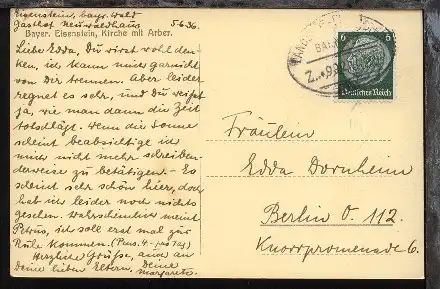 Eisenstein, bayr. Wald
Gasthof Neuwaldhaus 5.6.36.
Bayer. Eisenstein, Kirche mit Arber.
Liebe Edda, Du wirst wohl den-
ken, ich kann mich garnicht
von Dir trennen. Aber leider
regnet es sehr, und Du weißt
ja, wie man dann die Zeit
totschlägt. Wenn die Sonne
scheint beabsichtige ich
mich nicht mehr schreiben-
derweise zu betätigen. - Es
scheint sehr schön hier, doch
hab ich leider noch nichts
gesehen. Wahrscheinlich meint
Petrus, ich soll erst mal zur
Ruhe kommen. (Pens. 4.- pro Tag)
Herzliche Grüße, auch an
Deine lieben Eltern, Deine
Margarete.
BA
Z.
6 6
Deutsches Reich
Fräulein
Edda Dornheim
Berlin O. 112.
Knorrpromenade 6.